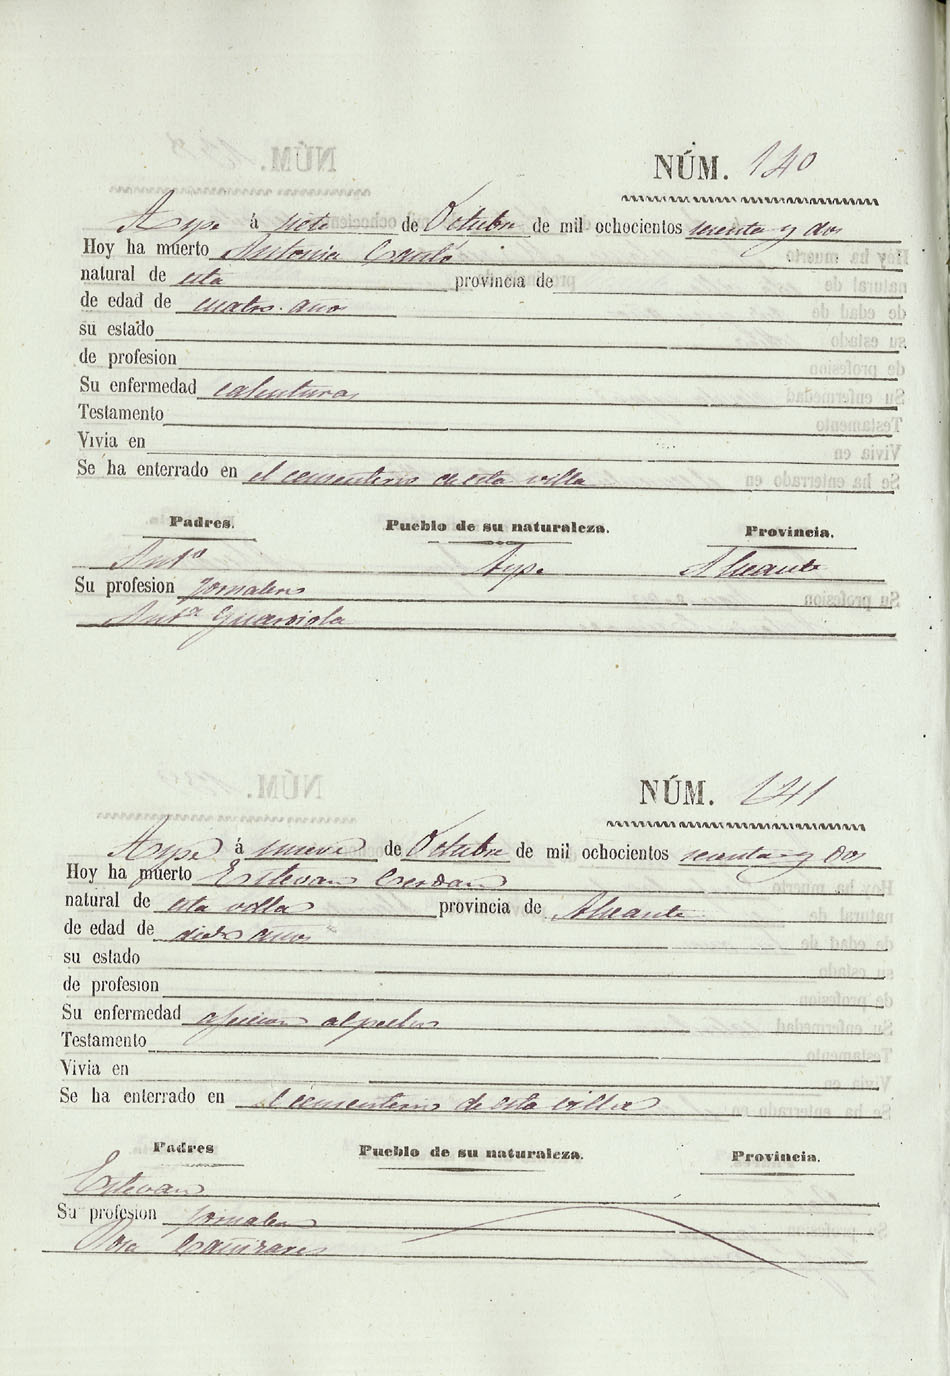 NÚM. 140
Aspe á siete de Octubre de mil ochocientos sesenta y dos
Hoy ha muerto Antonia
natural de esta provincia de
de edad de cuatro años
su estado
de profesion
Su enfermedad calenturas
Testamento
Vivia en
Se ha enterrado en el cementerio de esta villa
Padres. Pueblo de su naturaleza. Provincia.
Antº Aspe Alicante
Su profesion jornalero
Antª Guardiola
NÚM. 141
Aspe á nueve de Octubre de mil ochocientos sesenta y dos
Hoy ha muerto Estevan Cerdan
natural de esta villa provincia de Alicante
de edad de años
su estado
de profesion
Su enfermedad afeccion al pecho
Testamento
Vivia en
Se ha enterrado en el cementerio de esta villa
Padres Pueblo de su naturaleza. Provincia.
Estevan
Su profesion jornalero
Rosa Cañizares